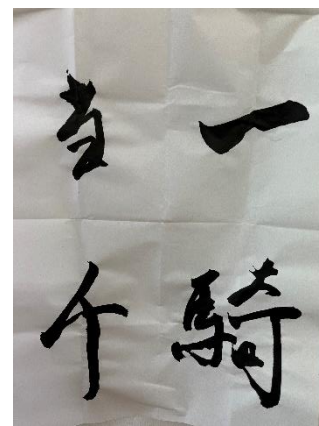 一騎
当千